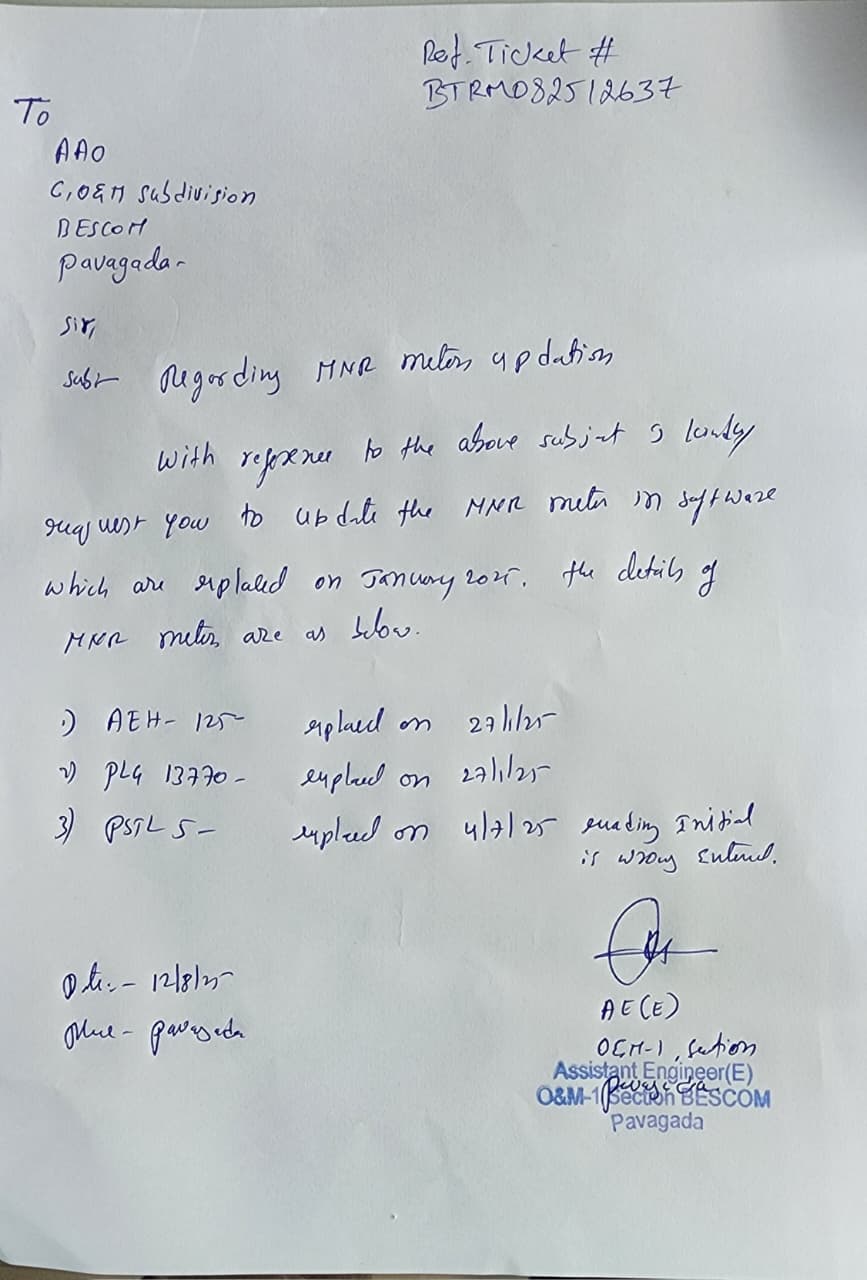 Ref. Ticket #
BTRM082512637
To
AAO
C,O&M subdivision
BESCOM
pavagada-
Sir,
Sub:- Regarding MNR meters updation
With reference to the above subject I kindly
request you to update the MNR meter in software
which are replaced on January 2025. the details of
MNR meters are as below.
1) AEH- 125- replaced on 27/1/25-
2) PLG 13770- replaced on 27/1/25-
3) PSTL 5- replaced on 4/7/25 reading Initial
is wrong Entered.
Date:- 12/8/25-
place- pavagada
AE(E)
O&M-1, Section
pavagada
Assistant Engineer(E)
O&M-1 Section BESCOM
Pavagada